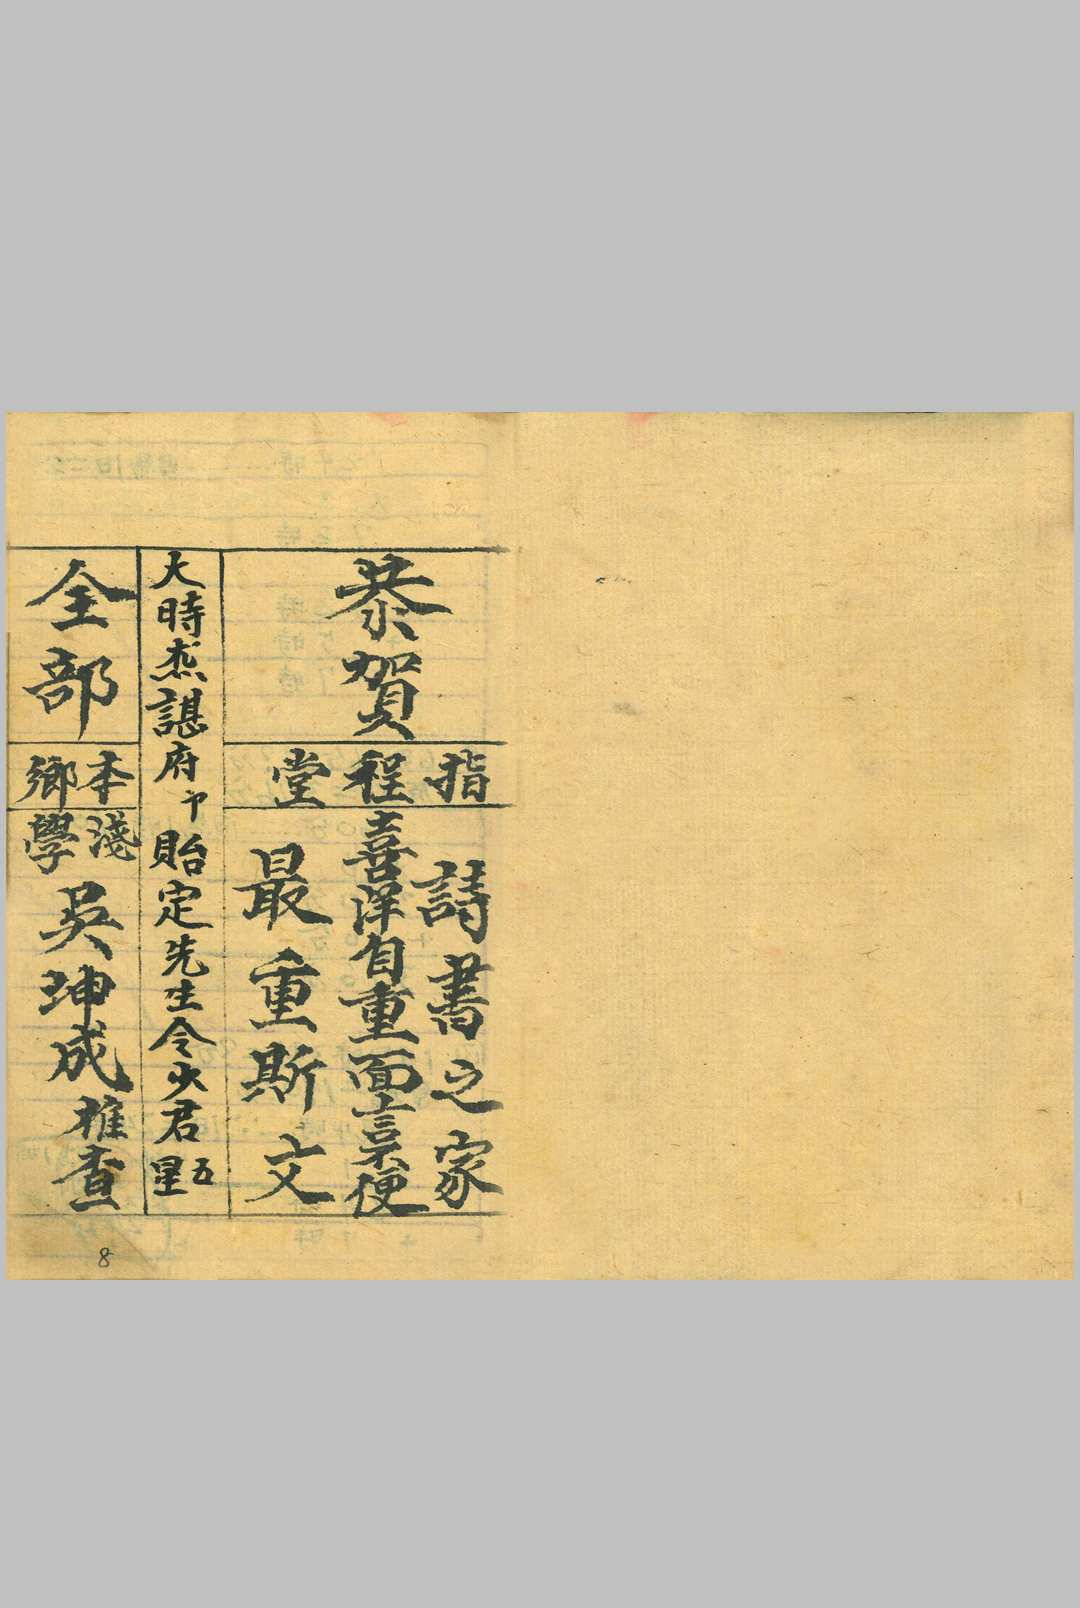 恭賀
指程堂
詩書之家
喜洋自重面稟便
最重斯文
大時憲諶府卩貽定先生令少君五星
全部
本鄉
淺學
吳坤成推查
8